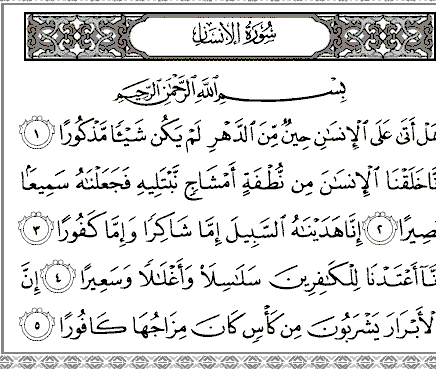 سُورَةُ الإِنسَانِ
بِسْمِ اللَّهِ الرَّحْمَٰنِ الرَّحِيمِ
هَلْ أَتَىٰ عَلَى الْإِنسَٰنِ حِينٌ مِّنَ الدَّهْرِ لَمْ يَكُن شَيْـًٔا مَّذْكُورًا ١
نَّا خَلَقْنَا الْإِنسَٰنَ مِن نُّطْفَةٍ أَمْشَاجٍ نَّبْتَلِيهِ فَجَعَلْنَٰهُ سَمِيعًا
صِيرًا ٢ إِنَّا هَدَيْنَٰهُ السَّبِيلَ إِمَّا شَاكِرًا وَإِمَّا كَفُورًا ٣
نَّآ أَعْتَدْنَا لِلْكَٰفِرِينَ سَلَٰسِلَا۟ وَأَغْلَٰلًا وَسَعِيرًا ٤ إِنَّ
لْأَبْرَارَ يَشْرَبُونَ مِن كَأْسٍ كَانَ مِزَاجُهَا كَافُورًا ٥